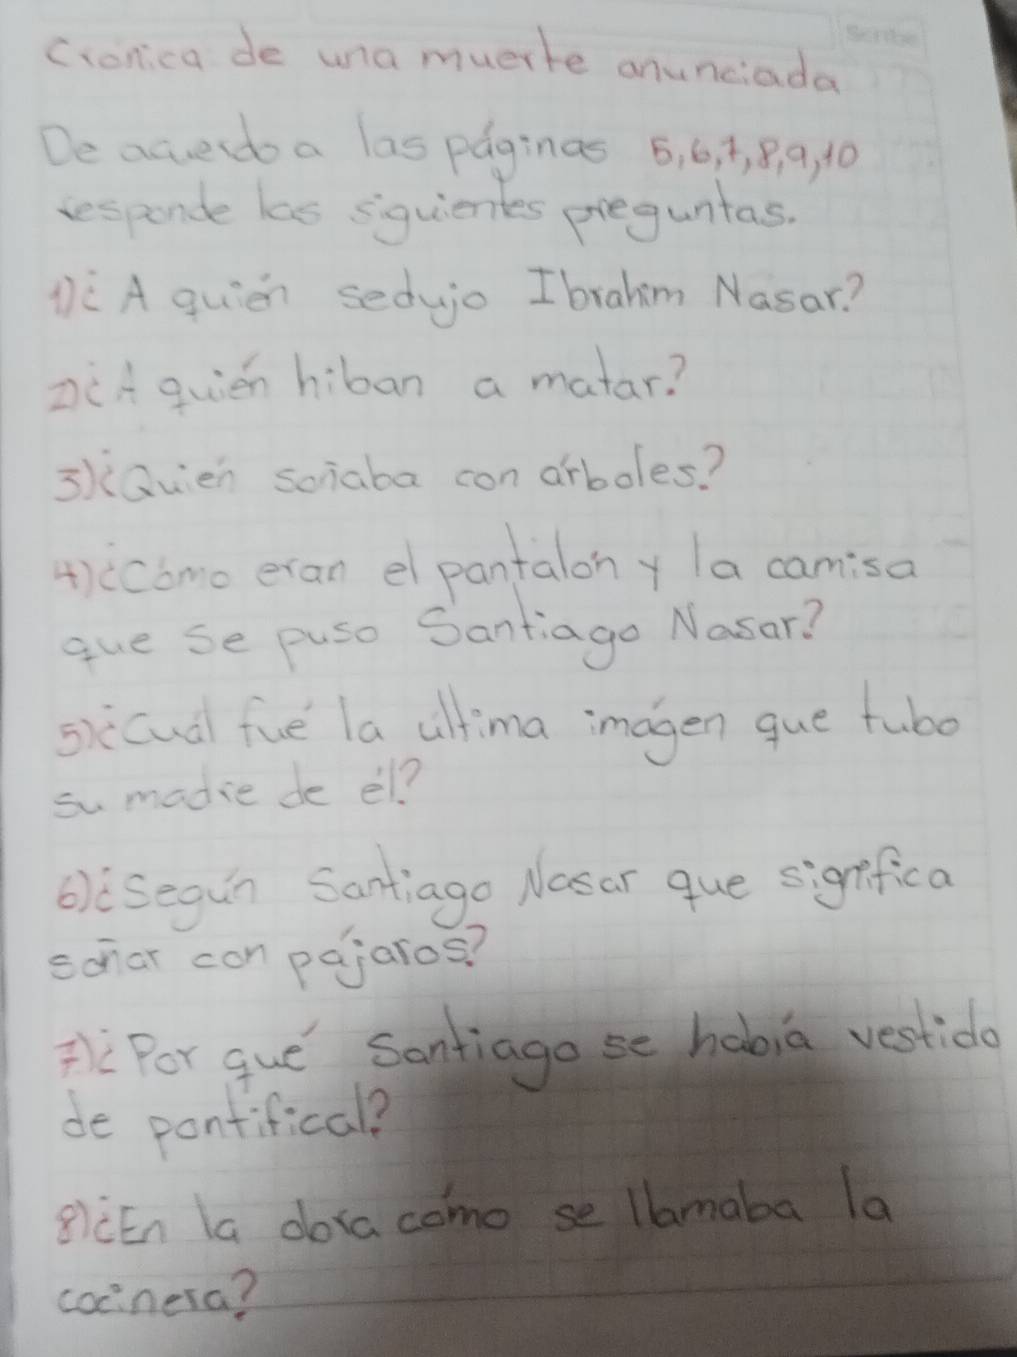 Scribe
Crónica de una muerte anunciada
De acuerdo a las páginas 5,6,7,8,9,10
responde las siguientes preguntas.
1)¿A quién sedujo Ibrahim Nasar?
2)¿A quién hiban a matar?
3)¿Quién soñaba con árboles?
4)¿Cómo eran el pantalón y la camisa
que se puso Santiago Nasar?
5)¿Cuál fué la última imágen que tubo
su madre de él?
6)¿Según Santiago Nasar que significa
soñar con pájaros?
7)¿Por qué Santiago se había vestido
de pontifical?
8)¿En la dora cómo se llamaba la
cocinera?